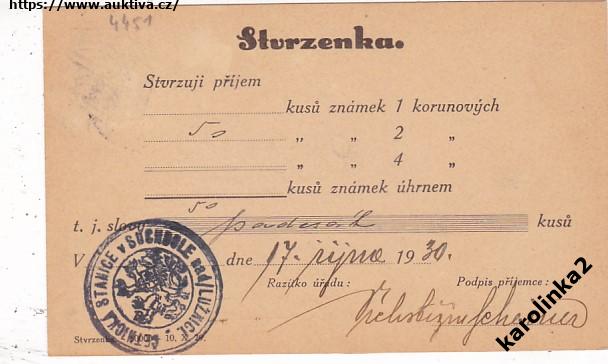 https://www.auktiva.cz/
4451
Stvrzenka.
Stvrzuji příjem
kusů známek 1 korunových
50 „ „ 2 „
„ „ 4 „
kusů známek úhrnem
50
t. j. slovy padesát kusů
V dne 17. října 1930.
Razítko úřadu: Podpis příjemce:
STANICE v SUCHDOLE nad/LUŽNICÍ
Stvrzenka 10. X.
karolinka2